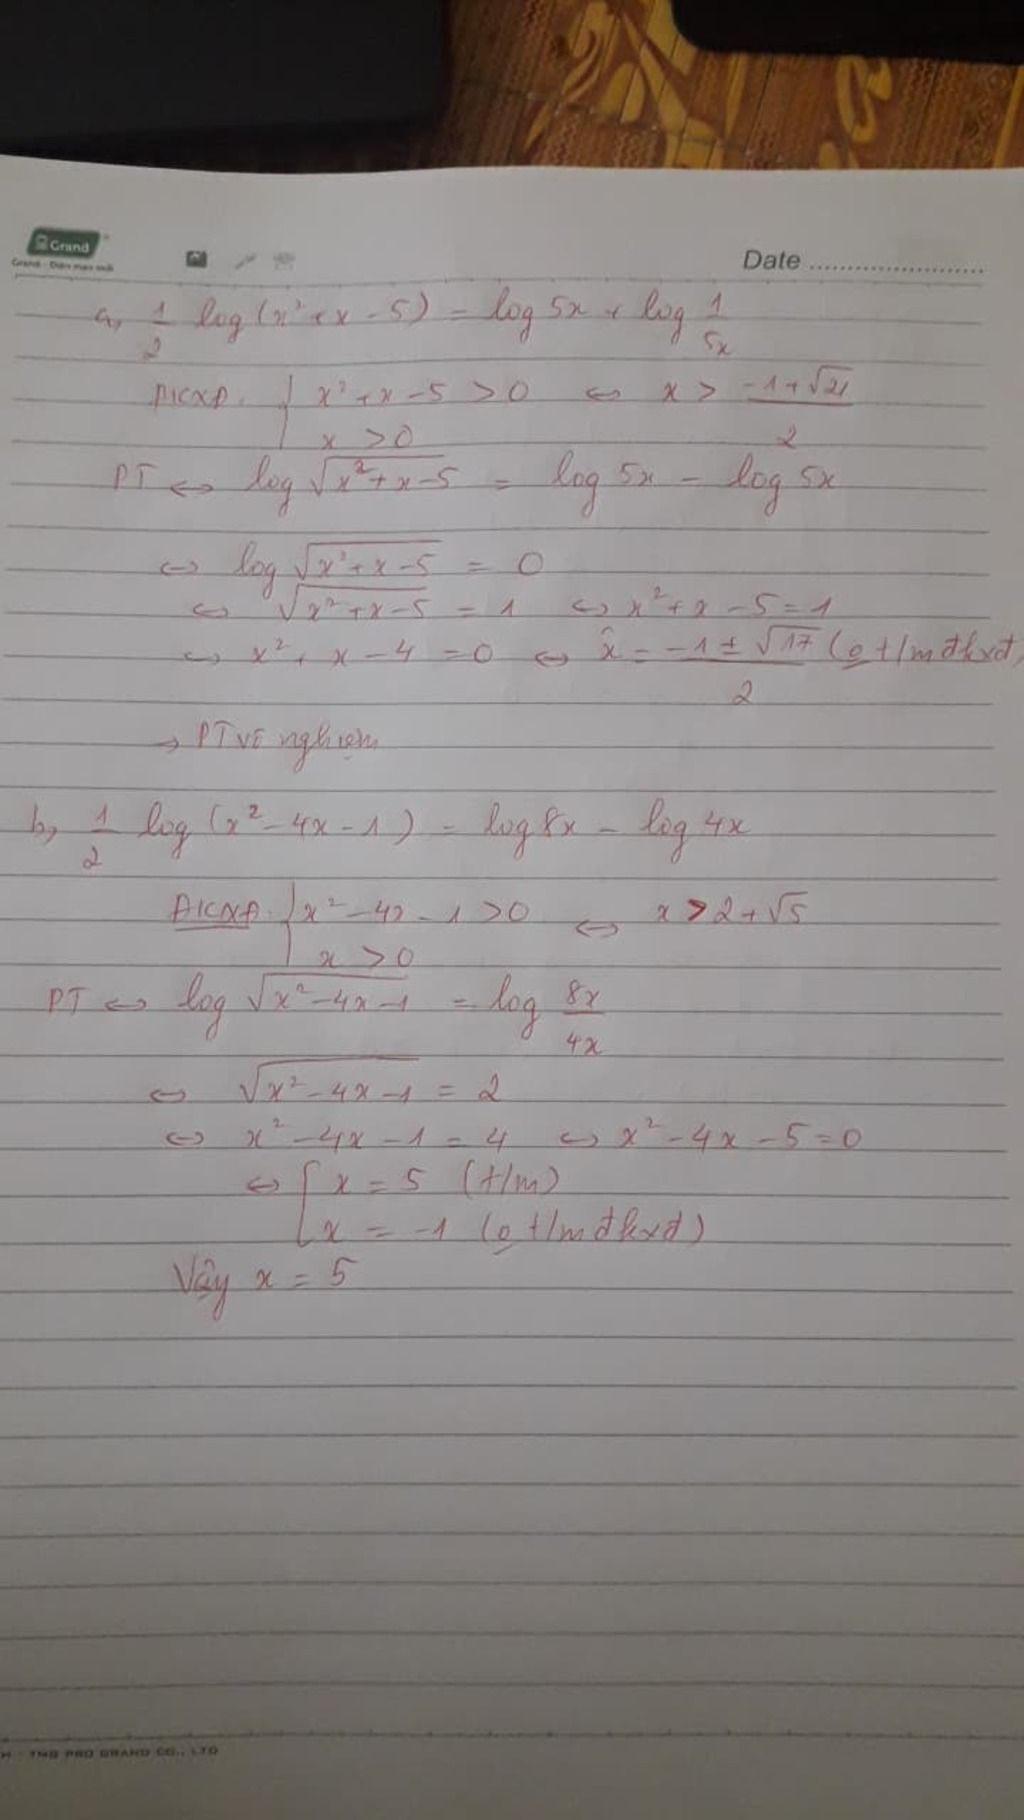 Grand
Date
a, 1/2 log (x² + x - 5) = log 5x + log 1/5x
ĐKXĐ. { x² + x - 5 > 0 ⇔ x > (-1 + √21)/2
x > 0
PT ⇔ log √(x² + x - 5) = log 5x - log 5x
⇔ log √(x² + x - 5) = 0
⇔ √(x² + x - 5) = 1 ⇔ x² + x - 5 = 1
⇔ x² + x - 4 = 0 ⇔ x = (-1 ± √17)/2 (o t/m đkxđ)
→ PT vô nghiệm
b, 1/2 log (x² - 4x - 1) = log 8x - log 4x
ĐKXĐ. { x² - 4x - 1 > 0 ⇔ x > 2 + √5
x > 0
PT ⇔ log √(x² - 4x - 1) = log 8x/4x
⇔ √(x² - 4x - 1) = 2
⇔ x² - 4x - 1 = 4 ⇔ x² - 4x - 5 = 0
⇔ [ x = 5 (t/m)
x = -1 (o t/m đkxđ)
Vậy x = 5
TNB PRO GRAND CO., LTD